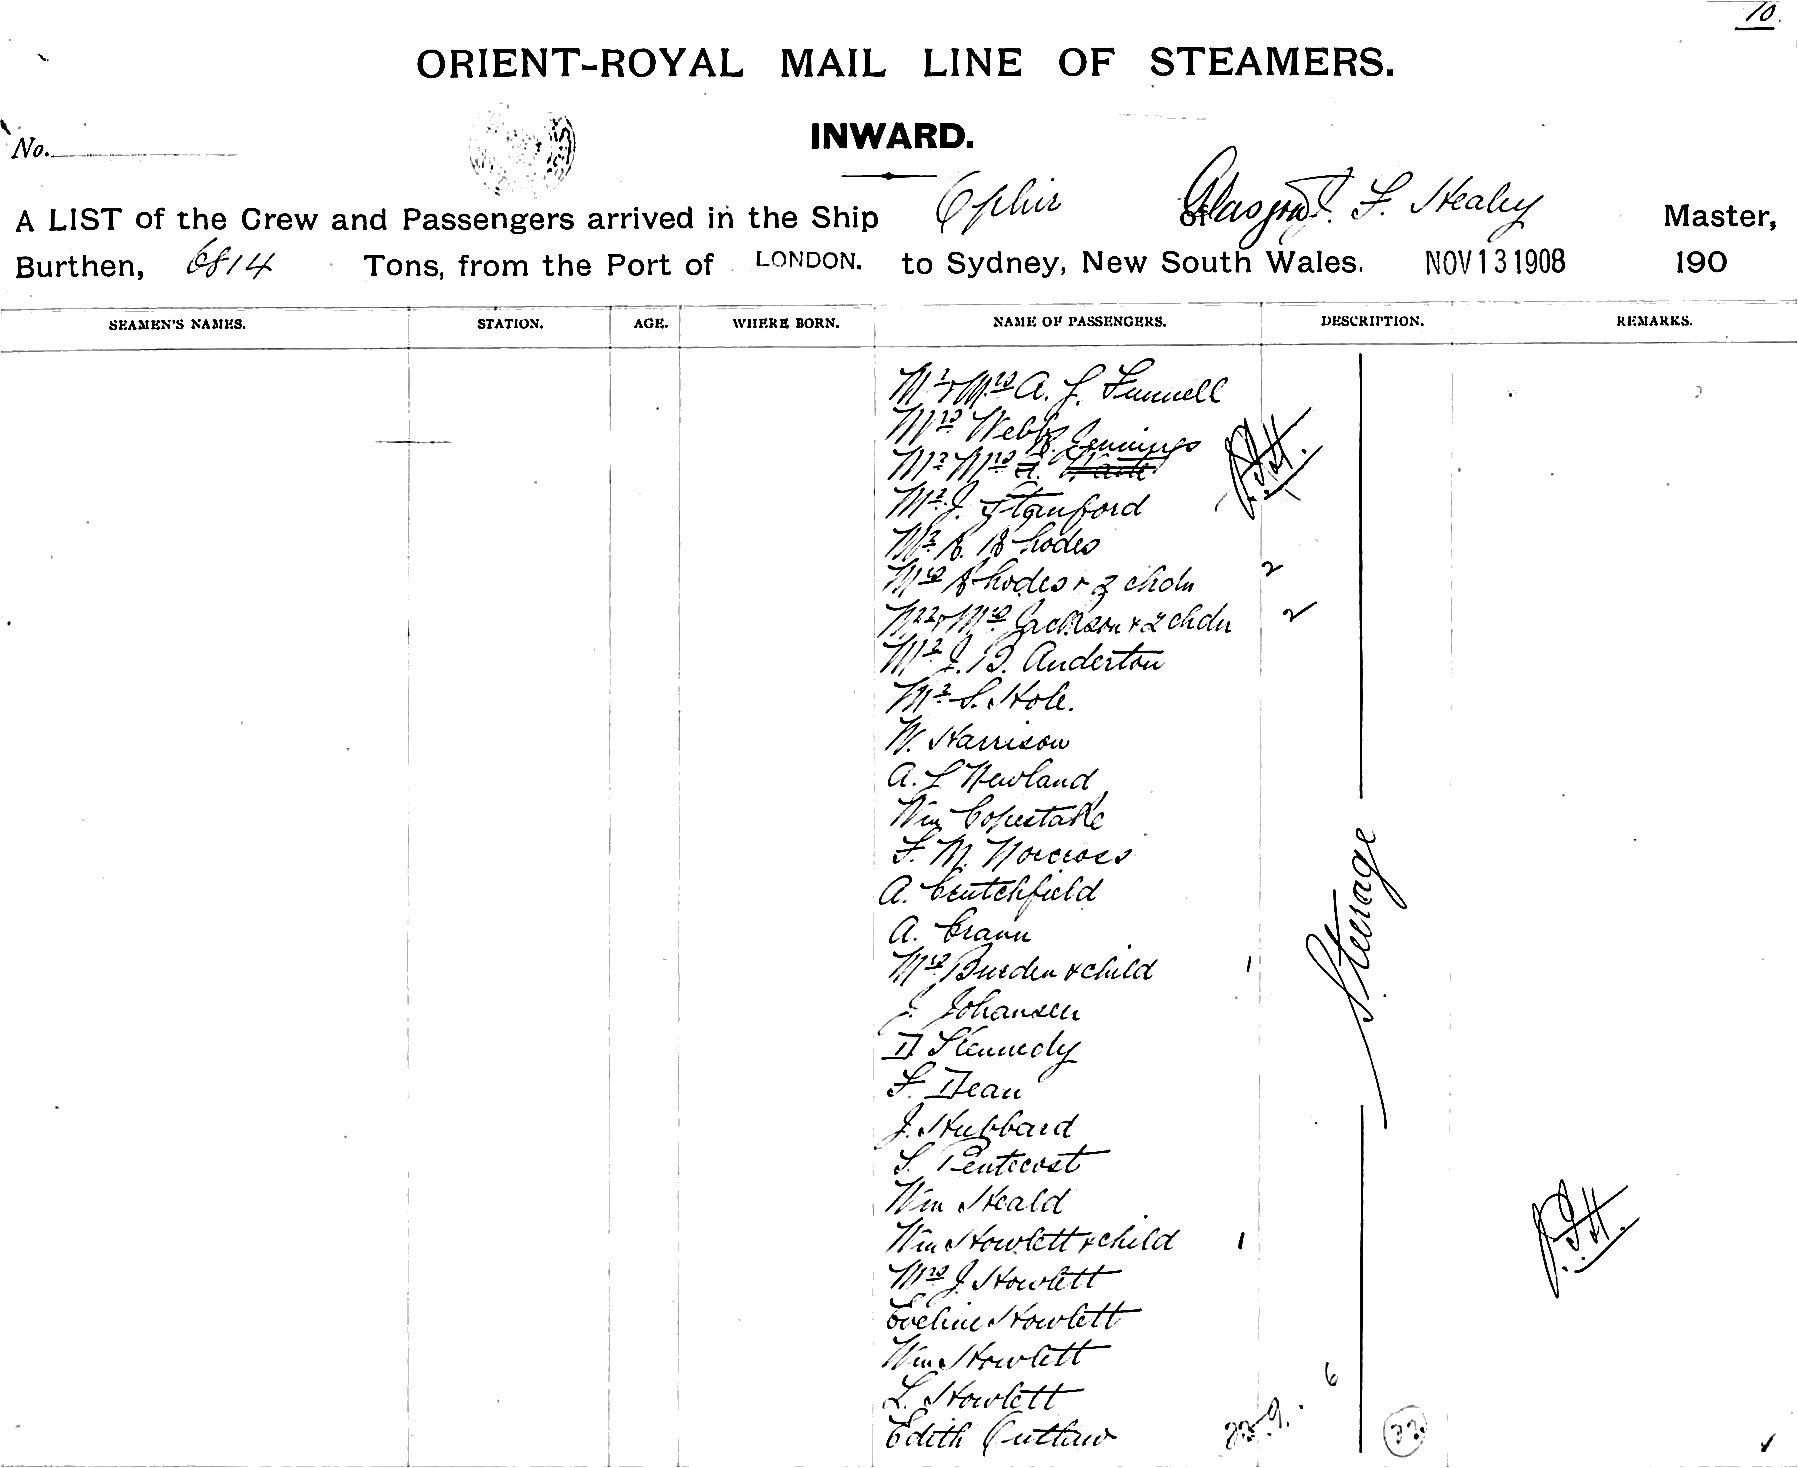 10.
ORIENT-ROYAL MAIL LINE OF STEAMERS.
INWARD.
No.
A LIST of the Crew and Passengers arrived in the Ship Ophir of Glasgow J. F. Healey Master,
Burthen, 6814 Tons, from the Port of LONDON. to Sydney, New South Wales. NOV 13 1908 190
SEAMEN'S NAMES. STATION. AGE. WHERE BORN. NAME OF PASSENGERS. DESCRIPTION. REMARKS.
Mr & Mrs A. J. Funnell
Mrs Webb
Jennings
Mr Mrs
Mr J. Stanford
Mr R. Rhodes
Mrs Rhodes & 2 chdn 2
Mr & Mrs Jackson & 2 chdn 2
Mr J. B. Anderton
Mr S. Hole.
W. Harrison
A. L Newland
Wm Copestake
F. M. Norcross
A. Crutchfield
A. Crann
Mrs Burden & child 1
J. Johansen
D Kennedy
F. Dean
J. Hubbard
S. Pentecost
Wm Heald
Wm Howlett & child 1
Mrs J. Howlett
Eveline Howlett
Wm Howlett
L. Howlett
Edith Outlaw
Steerage
6